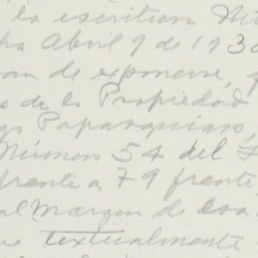 la escritura
Abril 9 de 193
de exponerse,
de la Propiedad
Papasquiaro,
Número 54 del
frente a 79 frente
al Margen de esa
textualmente